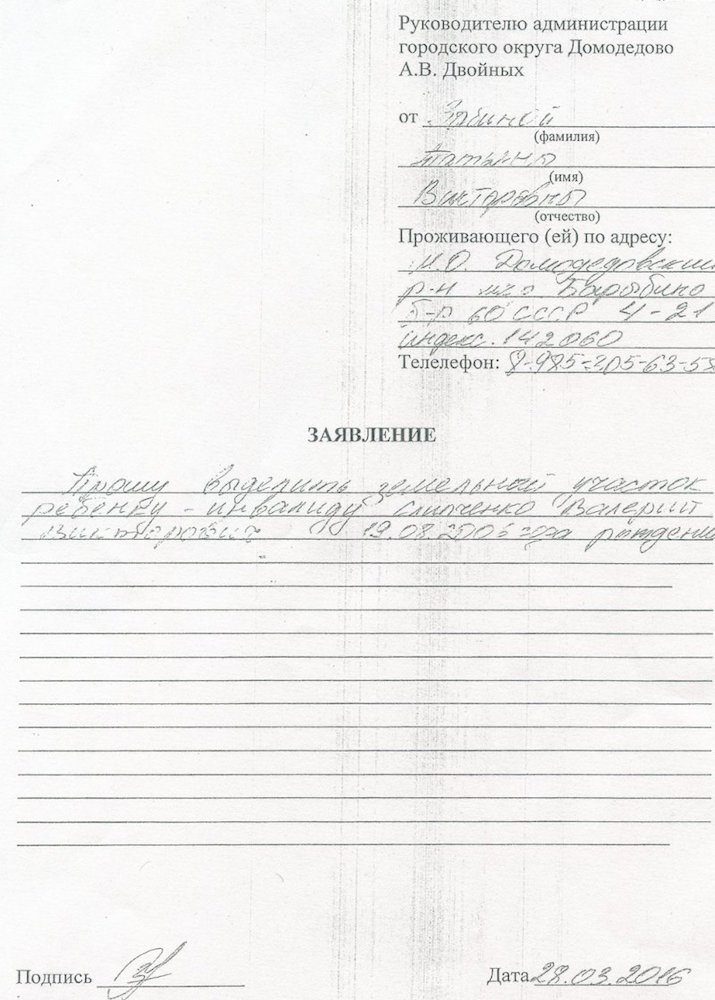 Руководителю администрации
городского округа Домодедово
А.В. Двойных
от Зыбиной
(фамилия)
Татьяны
(имя)
Викторовны
(отчество)
Проживающего (ей) по адресу:
М.О. Домодедовский
р-н мкр Барыбино
б-р 60 СССР 4-21
индекс. 142060
Телелефон: 8-985-205-63-53
ЗАЯВЛЕНИЕ
Прошу выделить земельный участок
ребенку - инвалиду Слипченко Валерий
Викторович 19.08.2005 года рождения
Подпись
Дата 28.03.2016